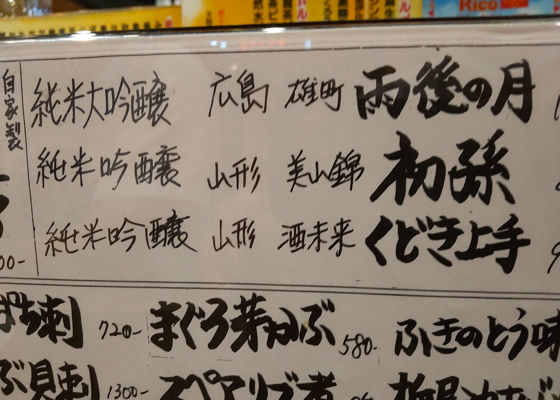 自家製
純米大吟醸 広島 雄町 雨後の月
純米吟醸 山形 美山錦 初孫
純米吟醸 山形 酒未来 くどき上手
00-
ぽち刺 720- まぐろ芽かぶ 580- ふきのとう味
ぶ貝刺 1300- スペアリブ煮